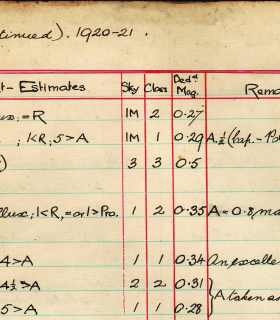 tinued). 1920-21.
t-Estimates Sky Class Ded^d Mag. Rema
ux; =R 1M 2 0.27
; 1<R, 5>A 1M 1 0.29 A ½(hap.-Po
) 3 3 0.5
llux; 1<R, = or 1>Pro. 1 2 0.35 A = 0.8, ma
4>A 1 1 0.34 An excelle
4½>A 2 2 0.31
5>A 1 1 0.28 A taken as